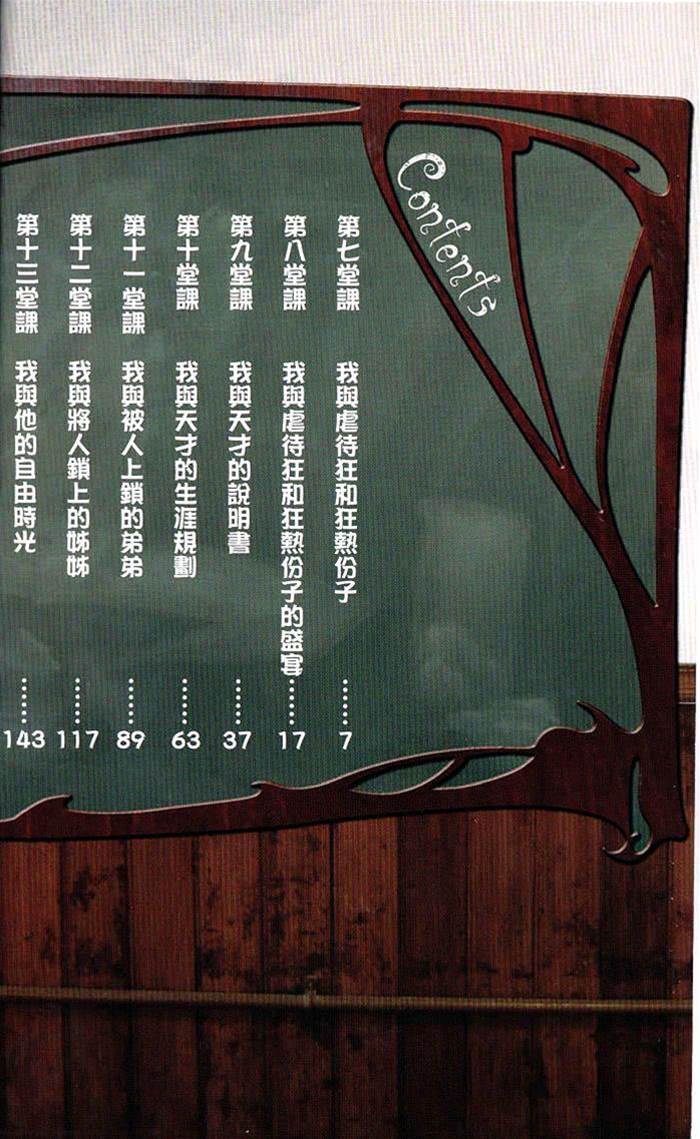 Contents
第七堂課 我與虐待狂和狂熱份子……7
第八堂課 我與虐待狂和狂熱份子的盛宴……17
第九堂課 我與天才的說明書……37
第十堂課 我與天才的生涯規劃……63
第十一堂課 我與被人上鎖的弟弟……89
第十二堂課 我與將人鎖上的姊姊……117
第十三堂課 我與他的自由時光……143